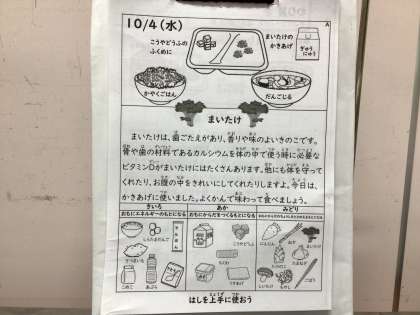 10/4(水)
A
こうやどうふの
ふくめに
まいたけの
かきあげ
ぎゅう
にゅう
かやくごはん
だんごじる
まいたけ
まいたけは、歯ごたえがあり、香りや味のよいきのこです。
骨や歯の材料であるカルシウムを体の中で使う時に必要な
ビタミンDがまいたけにはたくさんあります。他にも体を守って
くれたり、お腹の中をきれいにしてくれたりしますよ。今日は、
かきあげに使いました。よくかんで味わって食べましょう。
きいろ
あか
みどり
おもにエネルギーのもとになる
おもにからだをつくるもとになる
しらたまだんご
さつまいも
こめこ
あぶら
こうやどうふ
ちくわ
にんじん
ねぎ
たまねぎ
しいたけ
ごぼう
はしを上手に使おう